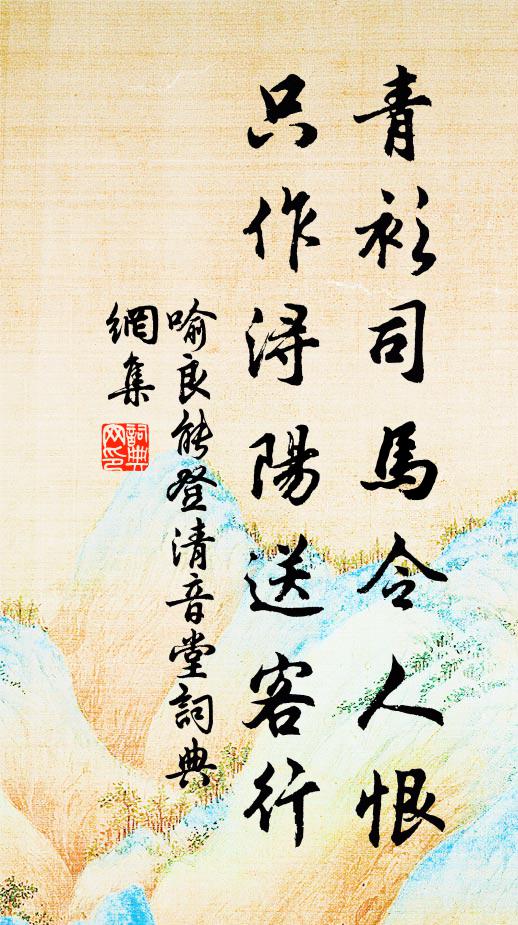 青衫司馬令人恨
只作潯陽送客行
喻良能登清音堂詞典
網集
詞典網印